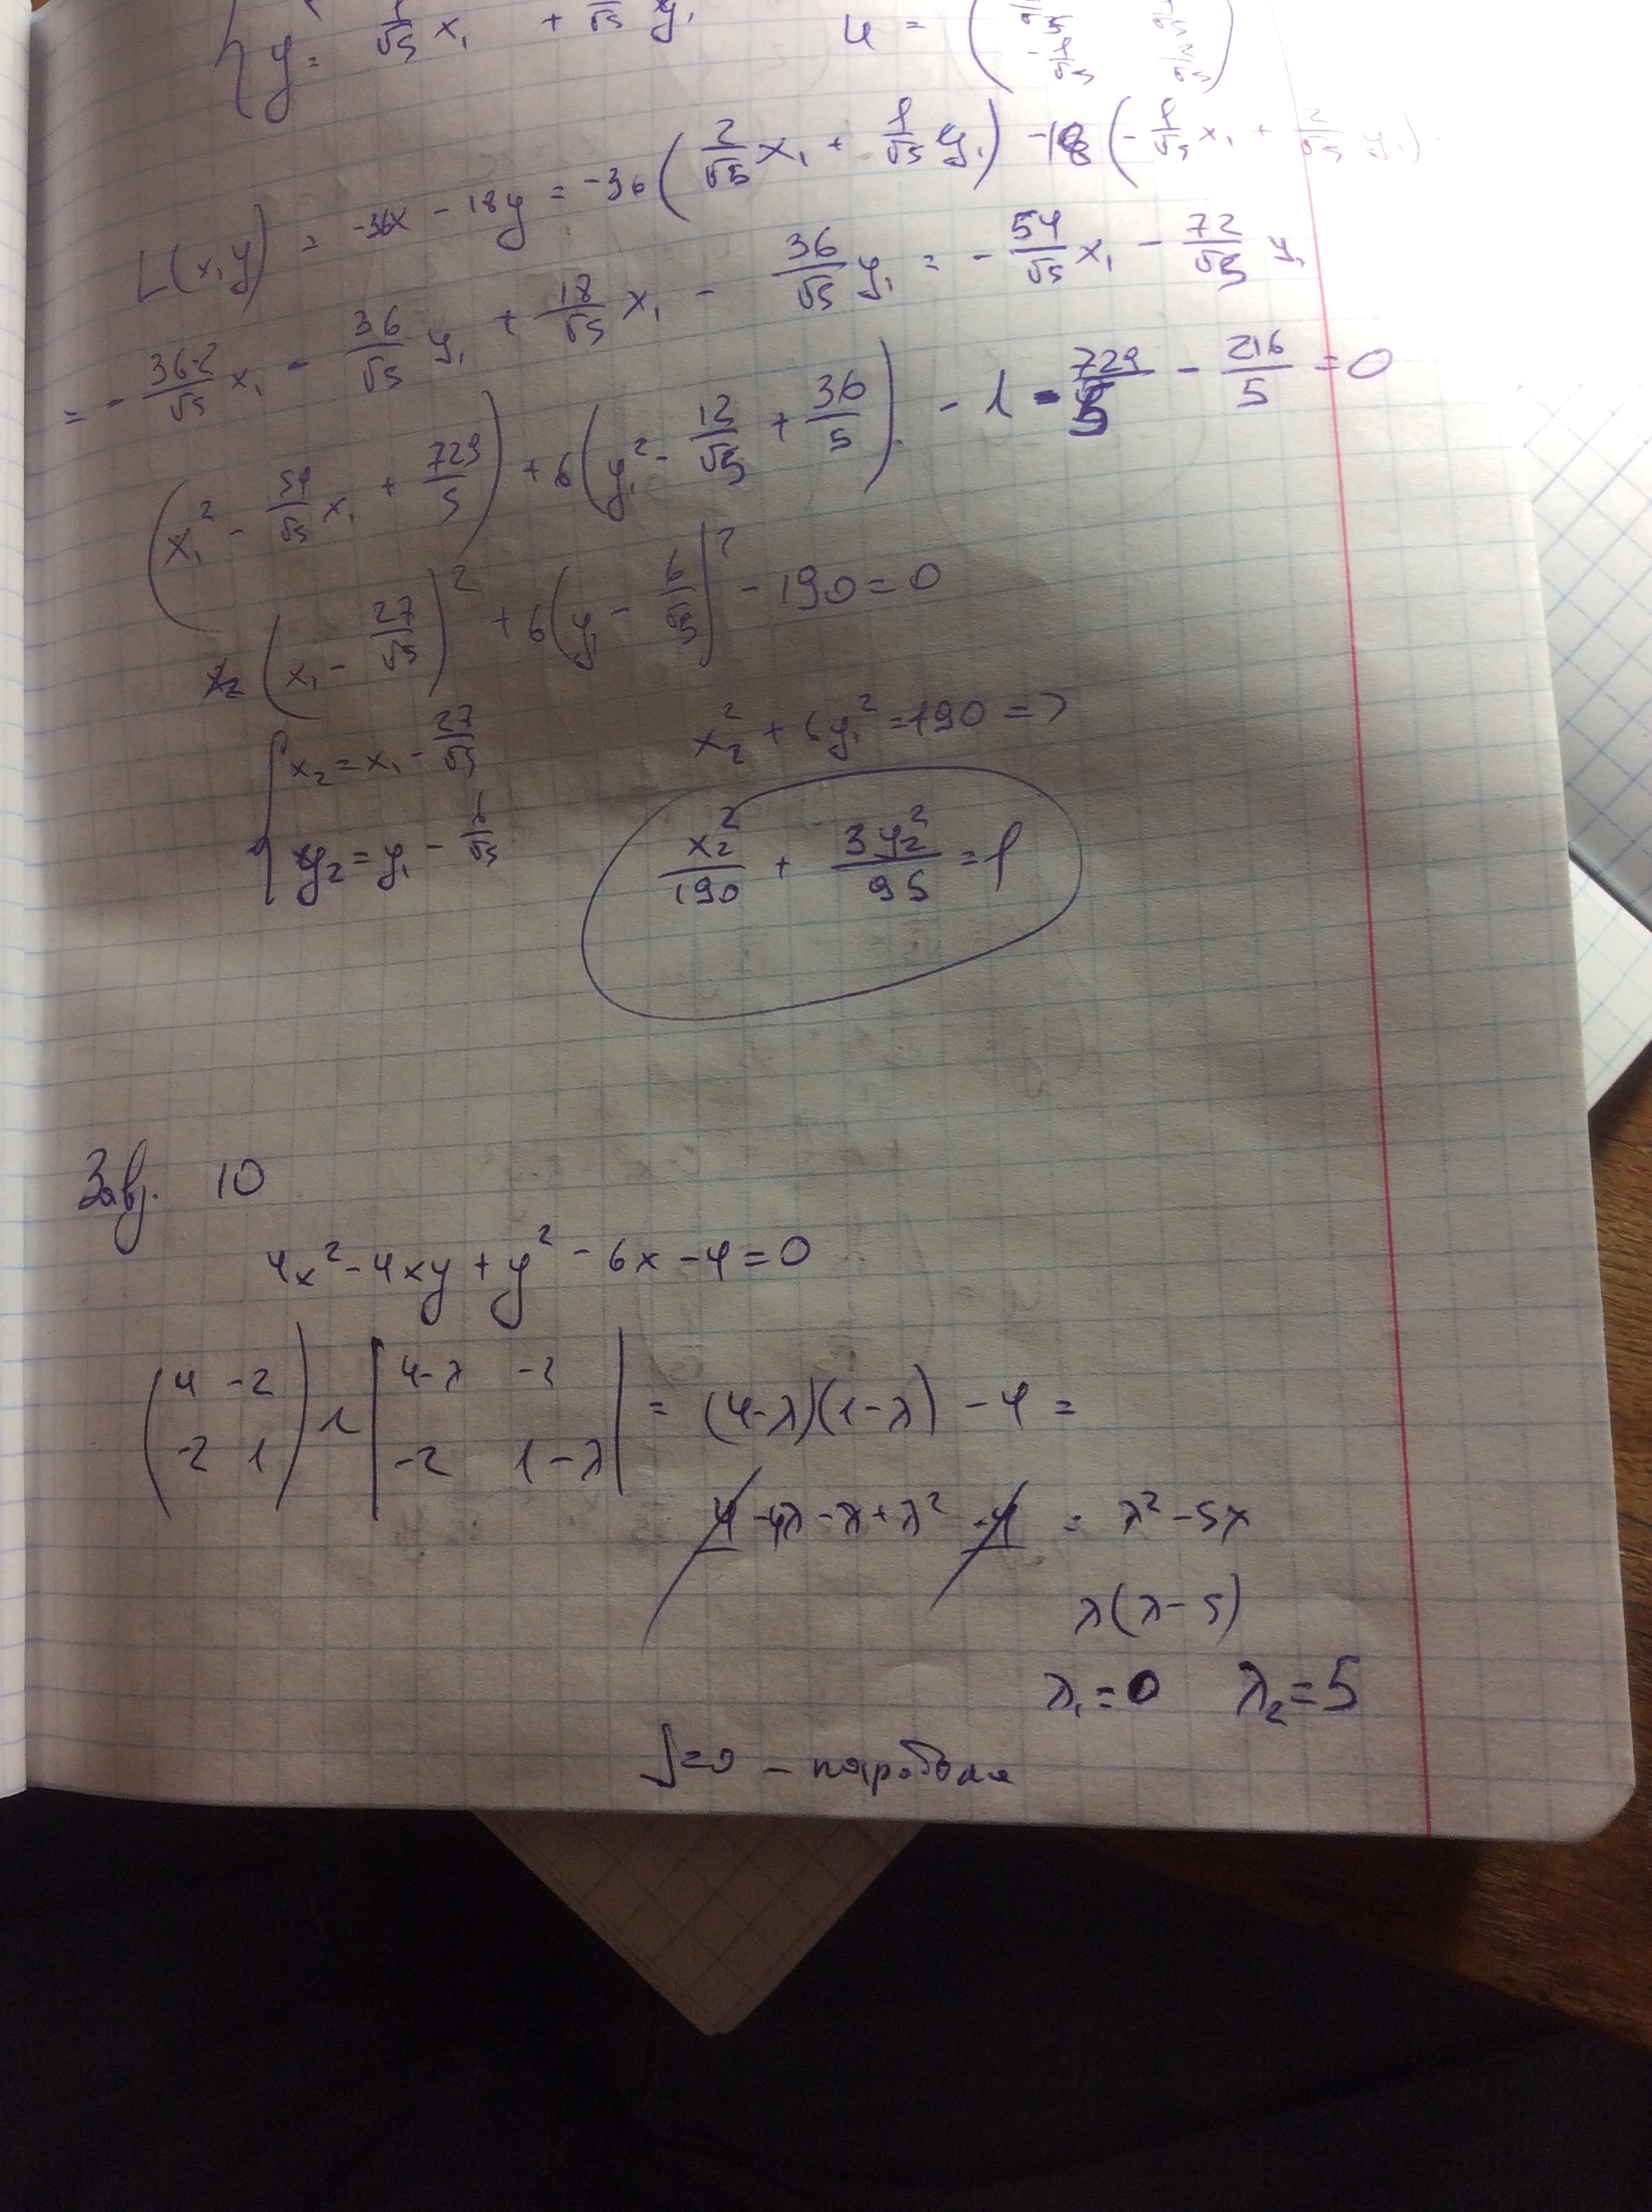 y = 1/√5 x₁ + /√5 y₁ U =
L(x,y) = -36x - 18y = -36(2/√5 x₁ + 1/√5 y₁) - 18(-1/√5 x₁ + 2/√5 y₁)
= - 36·2/√5 x₁ - 36/√5 y₁ + 18/√5 x₁ - 36/√5 y₁ = - 54/√5 x₁ - 72/√5 y₁
(x₁² - 54/√5 x₁ + 729/5) + 6(y₁² - 12/√5 + 36/5) - 1 - 729/5 - 216/5 = 0
(x₁ - 27/√5)² + 6(y₁ - 6/√5)² - 190 = 0
{ x₂ = x₁ - 27/√5 x₂² + 6y₁² = 190 =>
y₂ = y₁ - /√5 x₂²/190 + 3y₂²/95 = 1
Завд. 10
4x² - 4xy + y² - 6x - 4 = 0
(4 -2 |4-λ -2
-2 1) |-2 1-λ| = (4-λ)(1-λ) - 4 =
4 - 4λ - λ + λ² - 4 = λ² - 5λ
λ(λ - 5)
λ₁ = 0 λ₂ = 5
δ=0 - парабола